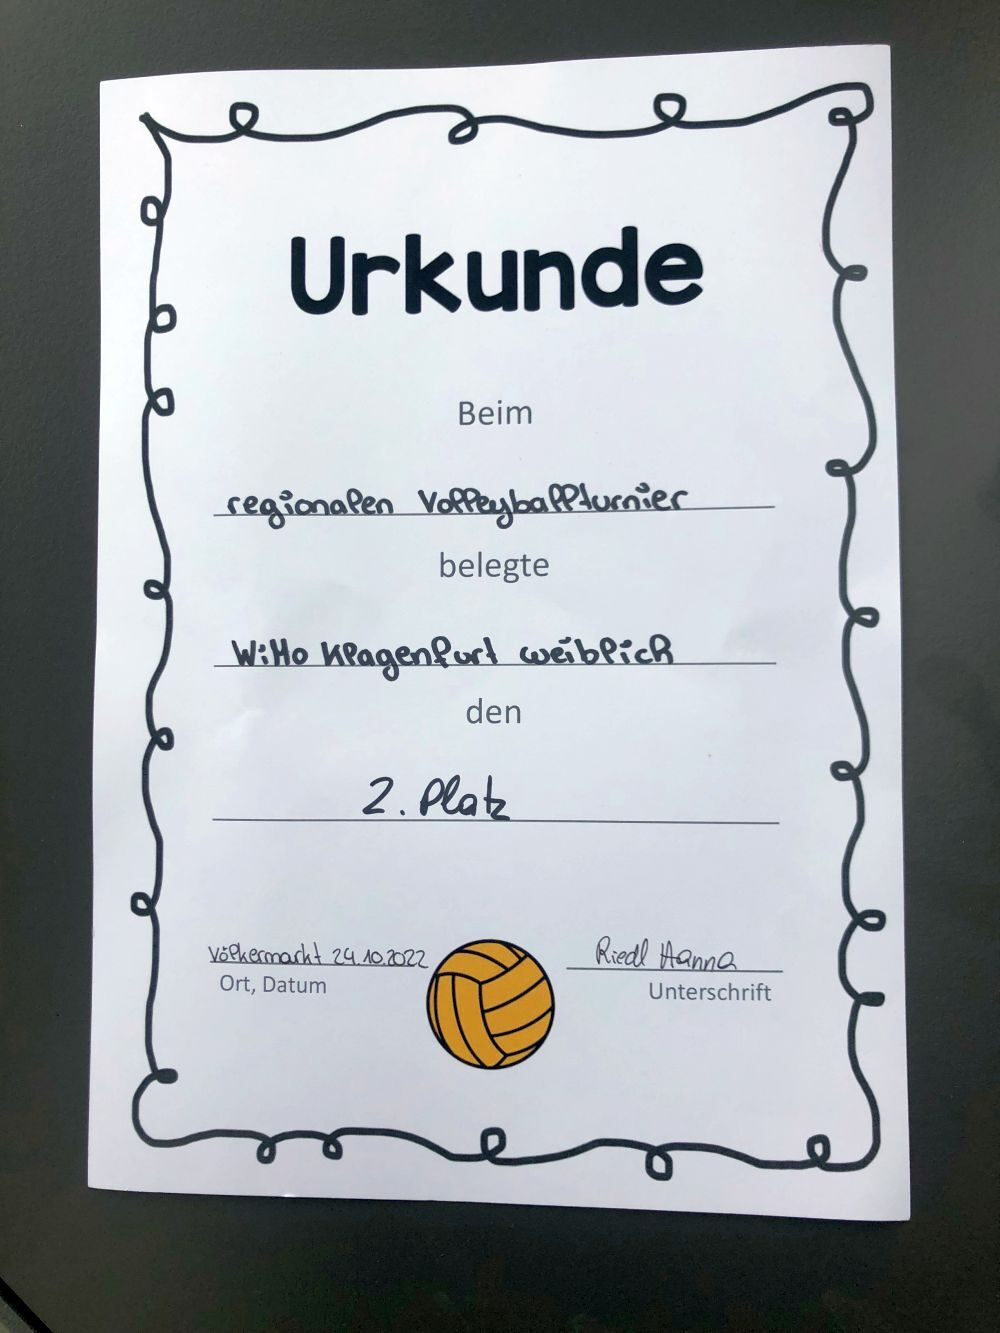 Urkunde
Beim
regionalen Volleyballturnier
belegte
WiMo Klagenfurt weiblich
den
2. Platz
Völkermarkt 24.10.2022 Riedl Hanna
Ort, Datum Unterschrift